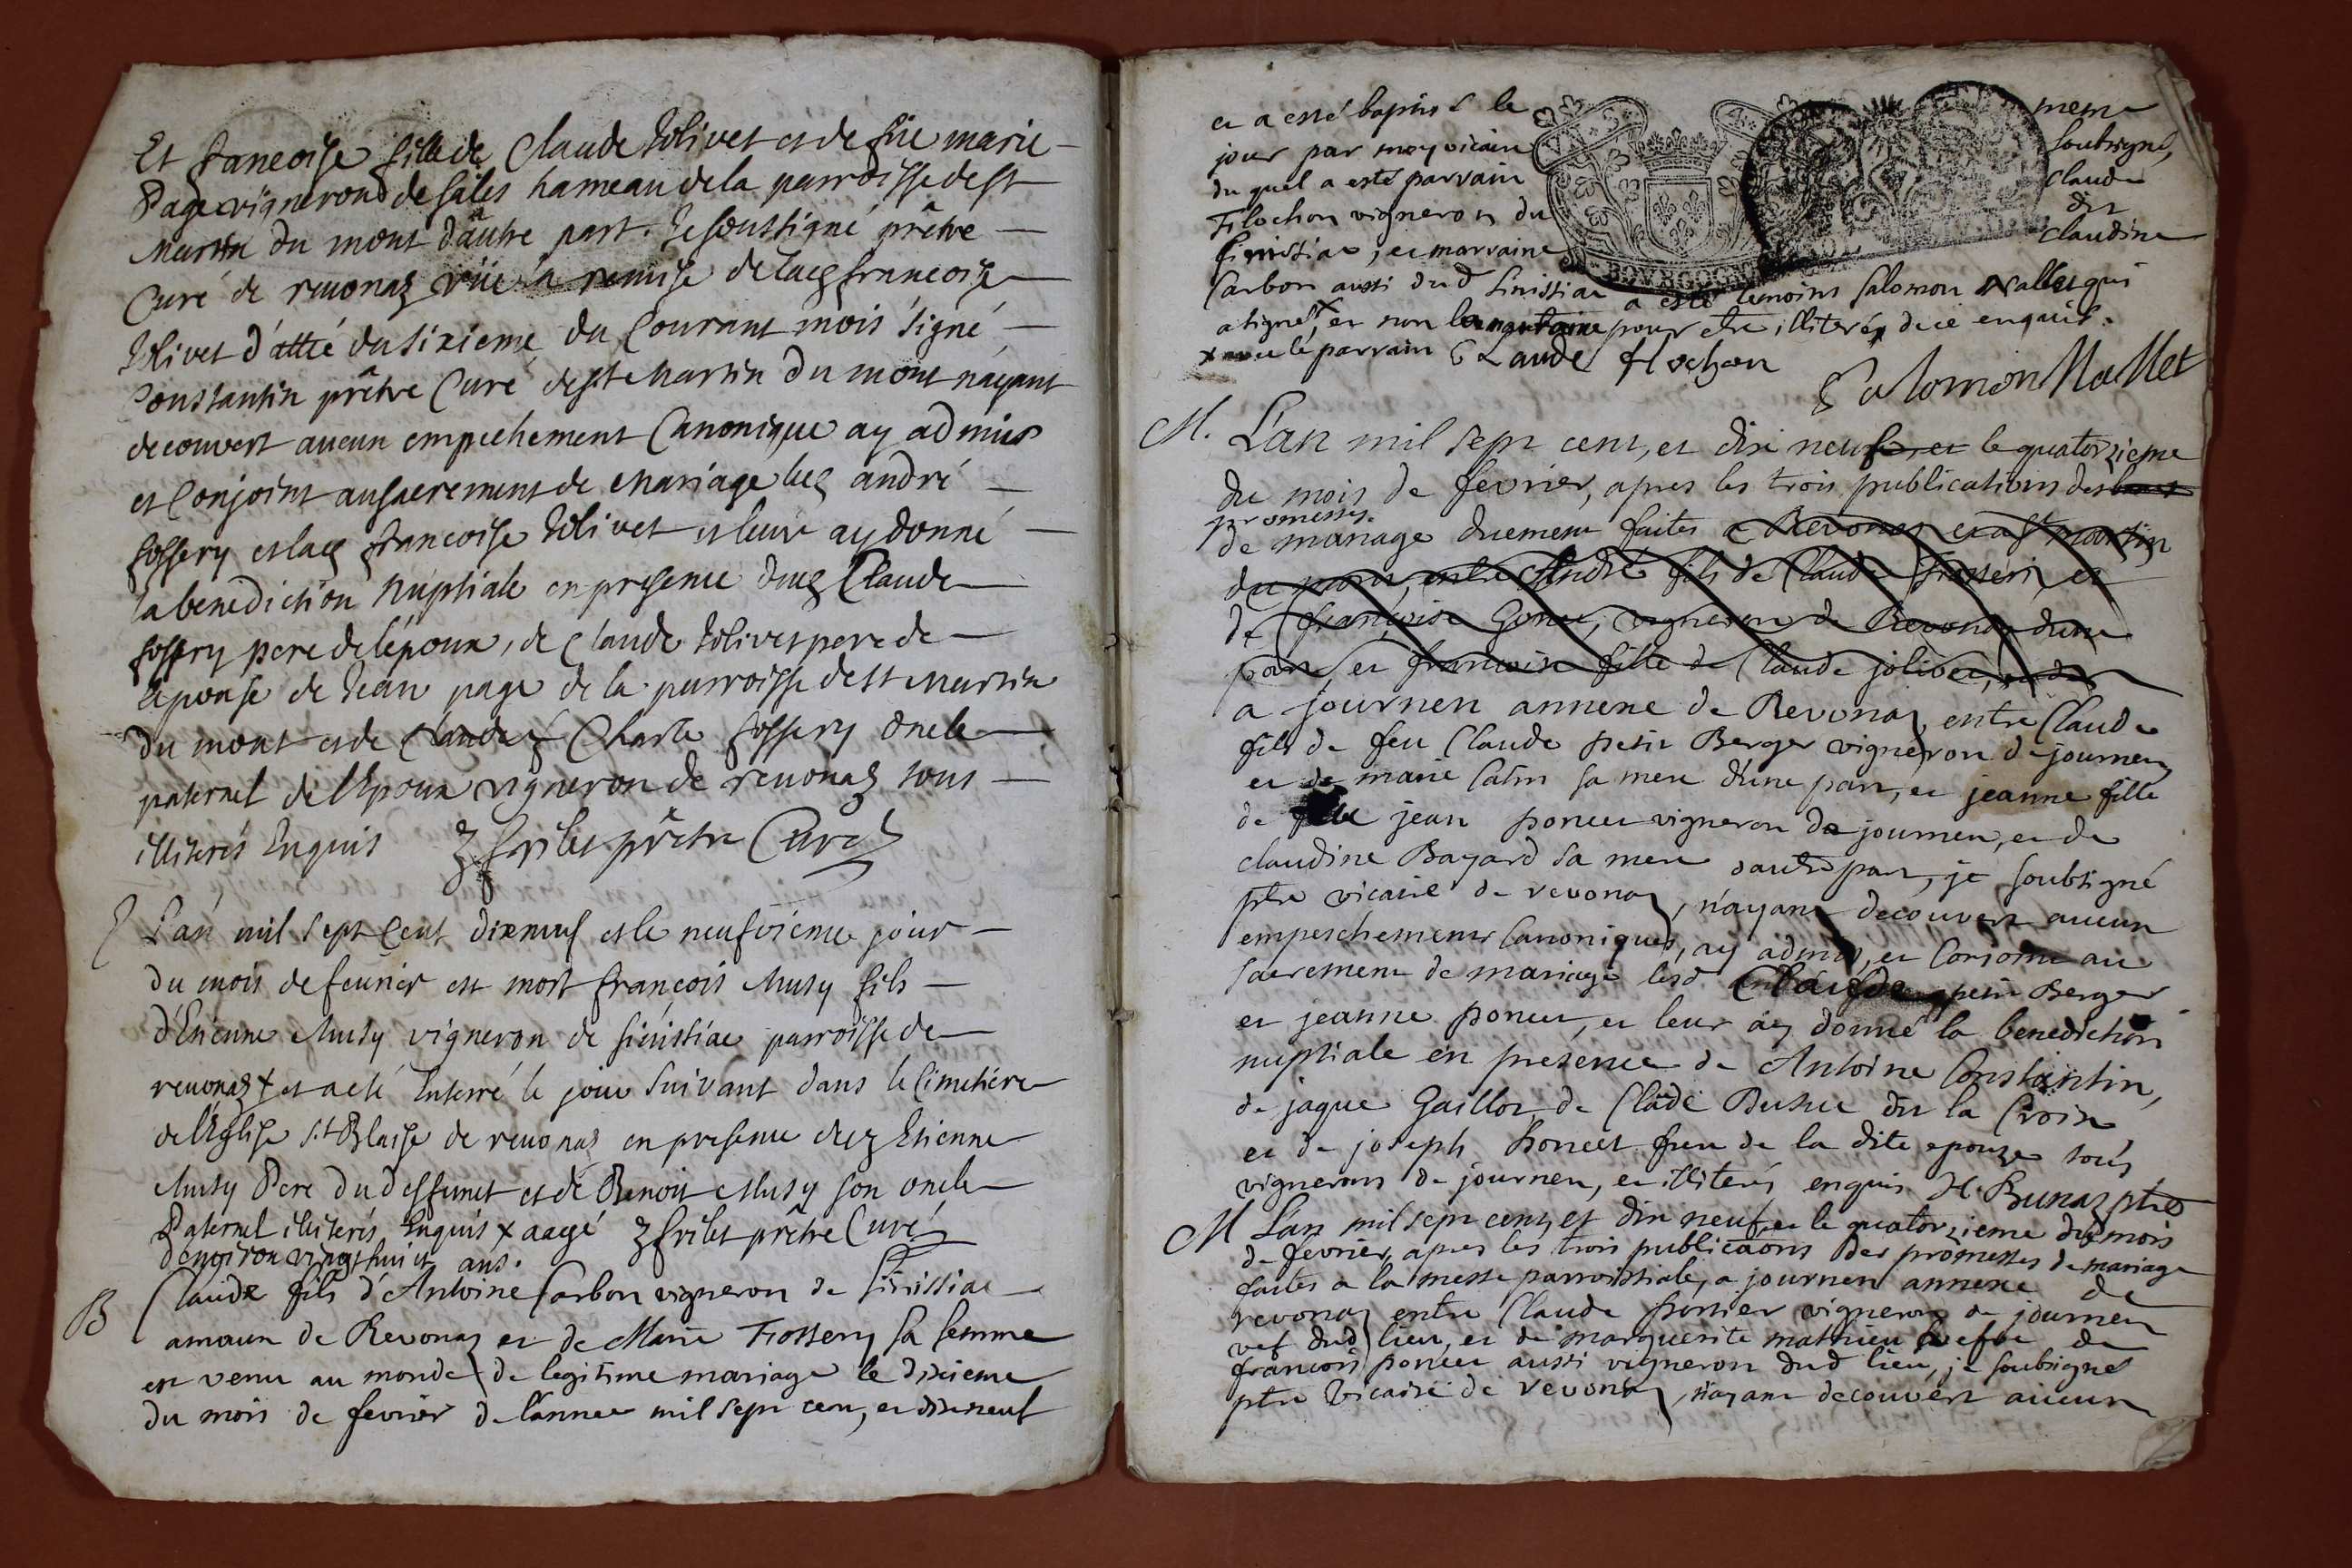 Et francoise fille de Claude Jolivet et de fue marie
Page vigneron de sales hameau de la parroisse de st
Martin du mont d'autre part. Je soussigné prêtre
Curé de reuonaz vüe la remise de lad francoise
Jolivet d'atté du sixieme du Courant mois signé
Constantin prêtre Curé de st Martin du mont n'ayant
decouvert aucun empechement Canonique ay admis
et Conjoint au sacrement de Mariage led andré
fossery et lad francoise Jolivet et leur ay donné
la benediction Nuptiale en presence dud Claude
fossery pere de l'époux, de Claude Jolivet pere de
l'épouse de Jean page de la parroisse de st Martin
du mont et de Charle fossery oncle
paternel de l'Epoux vigneron de reuonaz tous
illiterés Enquis prêtre Curé
L'an mil sept Cent dixneuf et le neufvième jour
du mois de feurier est mort françois Musy fils
d'Etienne Musy vigneron de sinissiac parroisse de
reuonaz x et a eté Enterré le jour suivant dans le Cimetiére
de l'Eglise St Blaise de reuonaz en presence dud Etienne
Musy Pere du deffunct et de Benoit Musy son oncle
Paternel illiterés Enquis x aagé prêtre Curé
d'environ vingt huict ans.
B Claude fils d'Antoine Carbon vigneron de sinissiac
ameau de Revonaz et de Marie Fossery sa femme
est venu au monde de legitime mariage le dixieme
du mois de fevrier de l'annee mil sept cent, et dixneuf
et a esté baptisé le meme
jour par moy vicaire soubsigné,
du quel a esté parrain Claude
Filochon vigneron du dit
sinissiac, et marraine Claudine
BOVRGOGNE
Carbon aussi dud sinissiac a esté temoins Salomon Mallet qui
a signé x, et non la pour etre illiterée de ce enquis.
x avec le parrain Claude flochon
Salomon Mallet
M. L'an mil sept cent, et dix neuf et le quatorzieme
du mois de fevrier, apres les trois publications des
promesses
de mariage duement faites a Revonaz et a st martin
du mont, entre André fils de Claude Fosseri, et
de françoise Gonet, vigneron de Revonaz d'une
part, et francoise fille de Claude jolivet, et de
a journen annexe de Revonaz, entre Claude
fils de feu Claude petit Berger vigneron de journen
et de marie Catin sa mere d'une part, et jeanne fille
de jean poncet vigneron de journen, et de
claudine Bayard sa mere d'autre part, je soubsigné
ptre vicaire de revonaz, n'ayant decouvert aucun
empeschement Canonique, ay admis, et Conjoint au
sacrement de mariage lesd Claude petit Berger
et jeanne poncet, et leur ay donné la benediction
nuptiale en presence de Antoine Constantin,
de jaque Gaillot, de Clade dit la Croix
et de joseph Poncet frere de la dite epouze tous
vignerons de journen, et illiterés enquis H. Bunaz ptre
M L'an mil sept cent, et dix neuf, et le quatorzieme du mois
de fevrier, apres les trois publications des promesses de mariage
faites a la messe parroissiale, a journen annexe de
revonaz entre Claude vigneron de journen
vef dud lieu, et de marguerite mathieu vefve de
francois poncet aussi vigneron dud lieu, je soubsigné
ptre vicaire de revonaz, n'ayant decouvert aucun